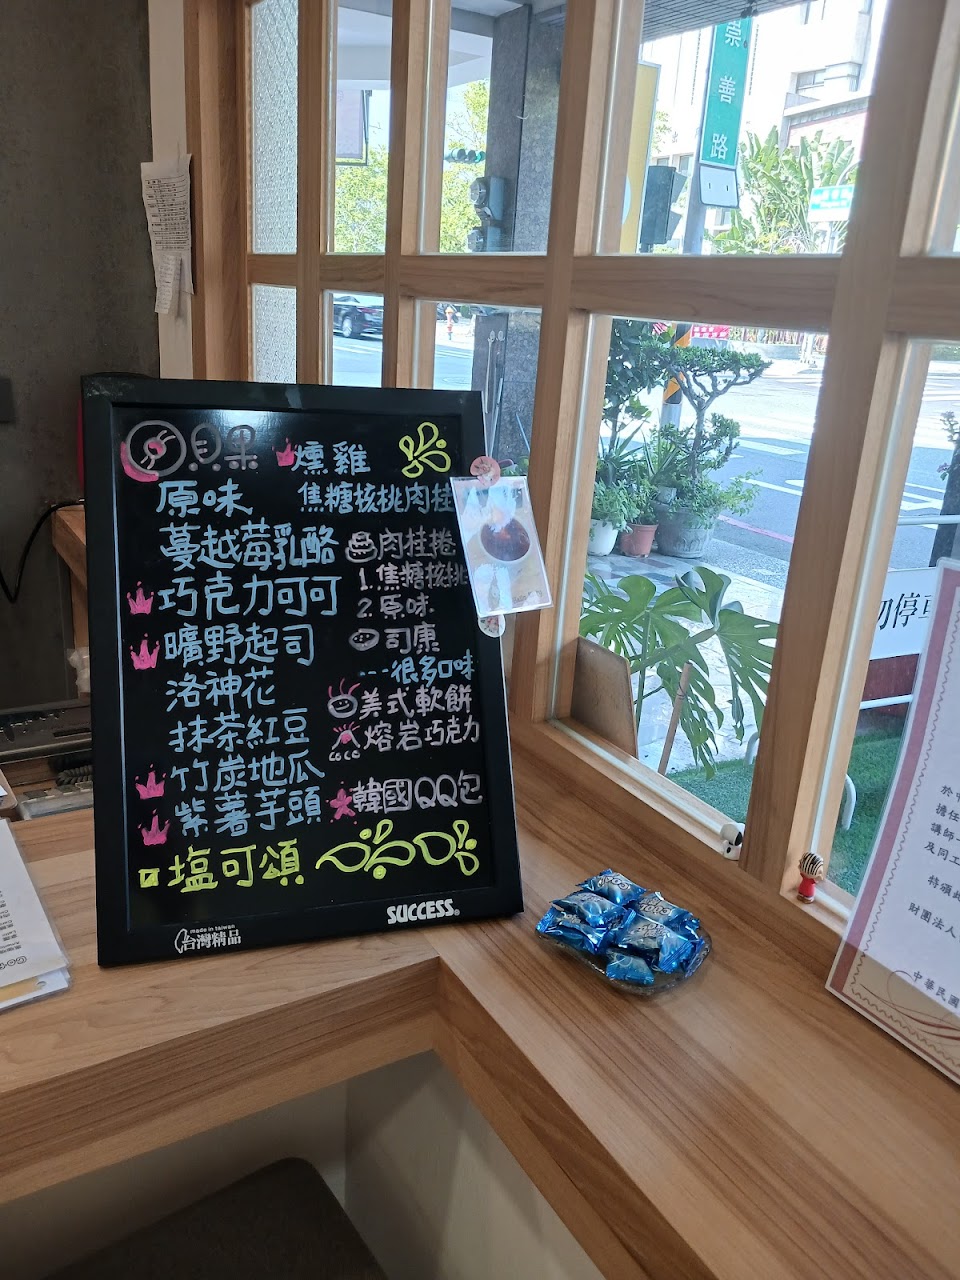 崇善路
貝果
原味
蔓越莓乳酪
巧克力可可
曠野起司
洛神花
抹茶紅豆
竹炭地瓜
紫薯芋頭
塩可頌
燻雞
焦糖核桃肉桂
肉桂捲
1.焦糖核桃
2.原味
司康
---很多口味
美式軟餅
熔岩巧克力
韓國QQ包
made in taiwan
台灣精品
SUCCESS®
勿停車
於中
擔任
講師
及同工
特頒此
財團法人
中華民國